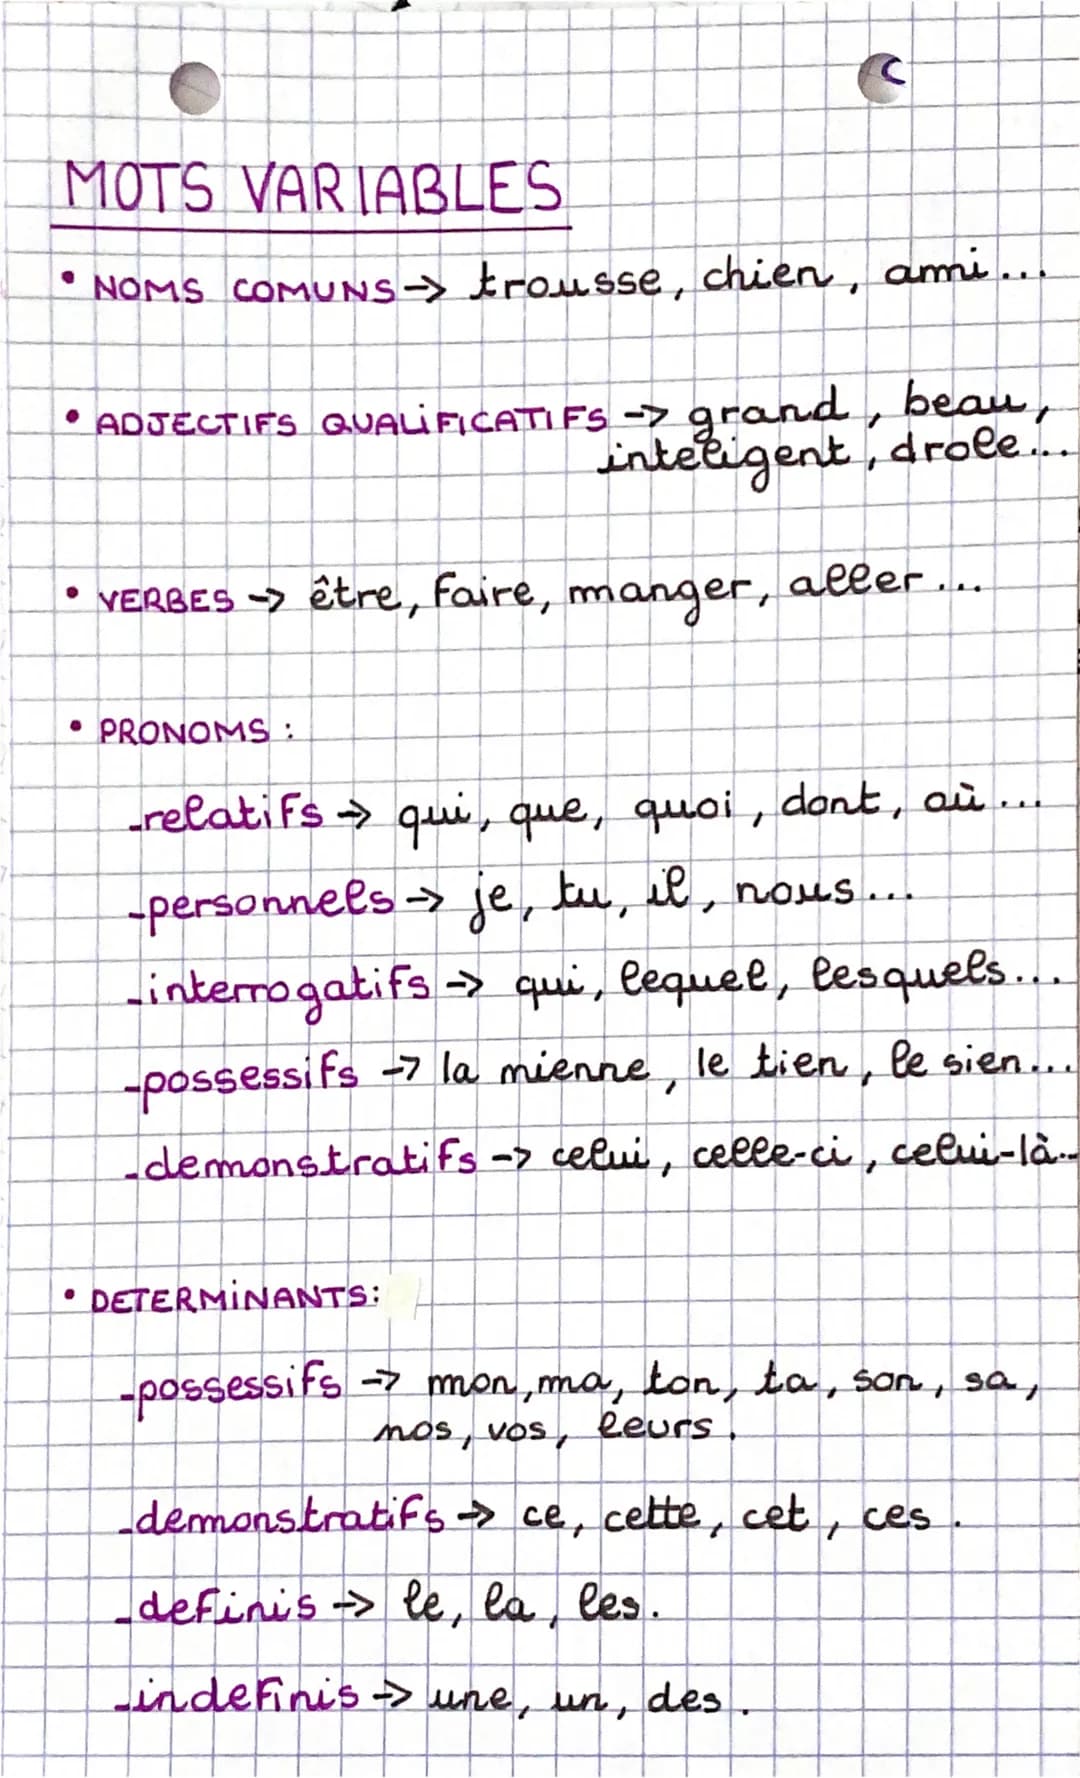 MOTS VARIABLES
• NOMS COMUNS → trousse, chien, ami...
• ADJECTIFS QUALiFiCATIFS → grand, beau,
inteligent, drole...
• VERBES → être, faire, manger, aller...
• PRONOMS :
-relatifs → qui, que, quoi, dont, où...
-personnels → je, tu, il, nous...
-interrogatifs → qui, lequel, lesquels...
-possessifs → la mienne, le tien, le sien...
-demonstratifs → celui, celle-ci, celui-là...
• DETERMiNANTS:
-possessifs → mon, ma, ton, ta, son, sa,
nos, vos, leurs.
-demonstratifs → ce, cette, cet, ces.
-definis → le, la, les.
-indefinis → une, un, des.